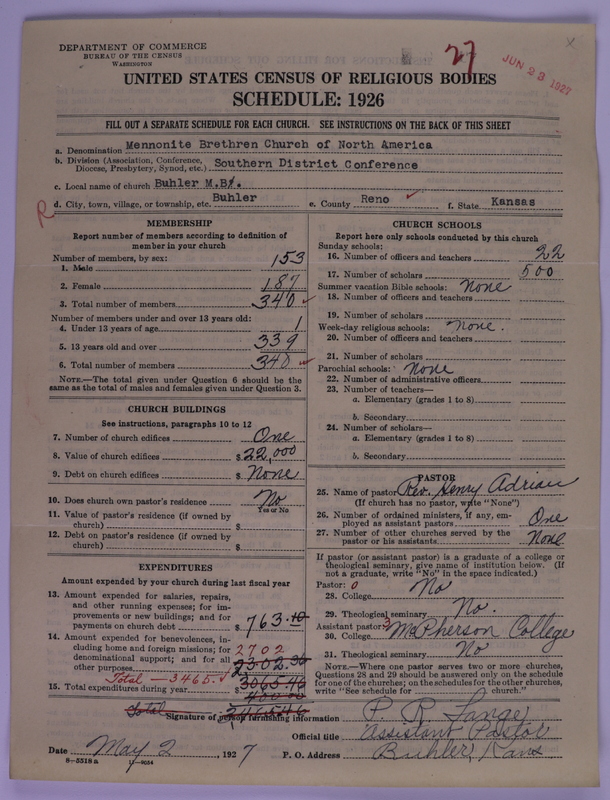 27
JUN 23 1927
x
DEPARTMENT OF COMMERCE
BUREAU OF THE CENSUS
WASHINGTON
UNITED STATES CENSUS OF RELIGIOUS BODIES
SCHEDULE: 1926
FILL OUT A SEPARATE SCHEDULE FOR EACH CHURCH. SEE INSTRUCTIONS ON THE BACK OF THIS SHEET
a. Denomination Mennonite Brethren Church of North America
b. Division (Association, Conference, Diocese, Presbytery, Synod, etc.) Southern District Conference
c. Local name of church Buhler M.B.
R d. City, town, village, or township, etc. Buhler e. County Reno f. State Kansas
MEMBERSHIP
Report number of members according to definition of
member in your church
Number of members, by sex:
1. Male 153
2. Female 187
3. Total number of members 340
Number of members under and over 13 years old:
4. Under 13 years of age 1
5. 13 years old and over 339
6. Total number of members 340
NOTE.—The total given under Question 6 should be
same as the total of males and females given under Question 3.
CHURCH BUILDINGS
See instructions, paragraphs 10 to 12
7. Number of church edifices One
8. Value of church edifices $22,000
9. Debt on church edifices $ None
10. Does church own pastor's residence No
Yes or No
11. Value of pastor's residence (if owned by
church) $
12. Debt on pastor's residence (if owned by
church) $
EXPENDITURES
Amount expended by your church during last fiscal year
13. Amount expended for salaries, repairs,
and other running expenses; for im-
provements or new buildings; and for
payments on church debt $763.10
14. Amount expended for benevolences, in-
cluding home and foreign missions; for
denominational support; and for all
other purposes 2702
2302.36
Total — 3465.
15. Total expenditures during year $3065.46
Total
CHURCH SCHOOLS
Report here only schools conducted by this church
Sunday schools:
16. Number of officers and teachers 22
17. Number of scholars 500
Summer vacation Bible schools: None
18. Number of officers and teachers
19. Number of scholars
Week-day religious schools: None.
20. Number of officers and teachers
21. Number of scholars
Parochial schools: None
22. Number of administrative officers
23. Number of teachers—
a. Elementary (grades 1 to 8)
b. Secondary
24. Number of scholars—
a. Elementary (grades 1 to 8)
b. Secondary
PASTOR
25. Name of pastor Rev. Henry Adrian
(If church has no pastor, write "None")
26. Number of ordained ministers, if any, em-
ployed as assistant pastors One
27. Number of other churches served by the
pastor or his assistants None
If pastor (or assistant pastor) is a graduate of a college or
theological seminary, give name of institution below. (If
not a graduate, write "No" in the space indicated.)
Pastor: 0
28. College No
29. Theological seminary No.
Assistant pastor: 3
30. College McPherson College
31. Theological seminary No
NOTE.—Where one pastor serves two or more churches,
Questions 28 and 29 should be answered only on the schedule
for one of the churches; on the schedules for the other churches,
write "See schedule for church."
Signature of person furnishing information P. R. Lange
Official title Assistant Pastor
Date May 2, 1927 P. O. Address Buhler, Kans
8—5318a 11—9034